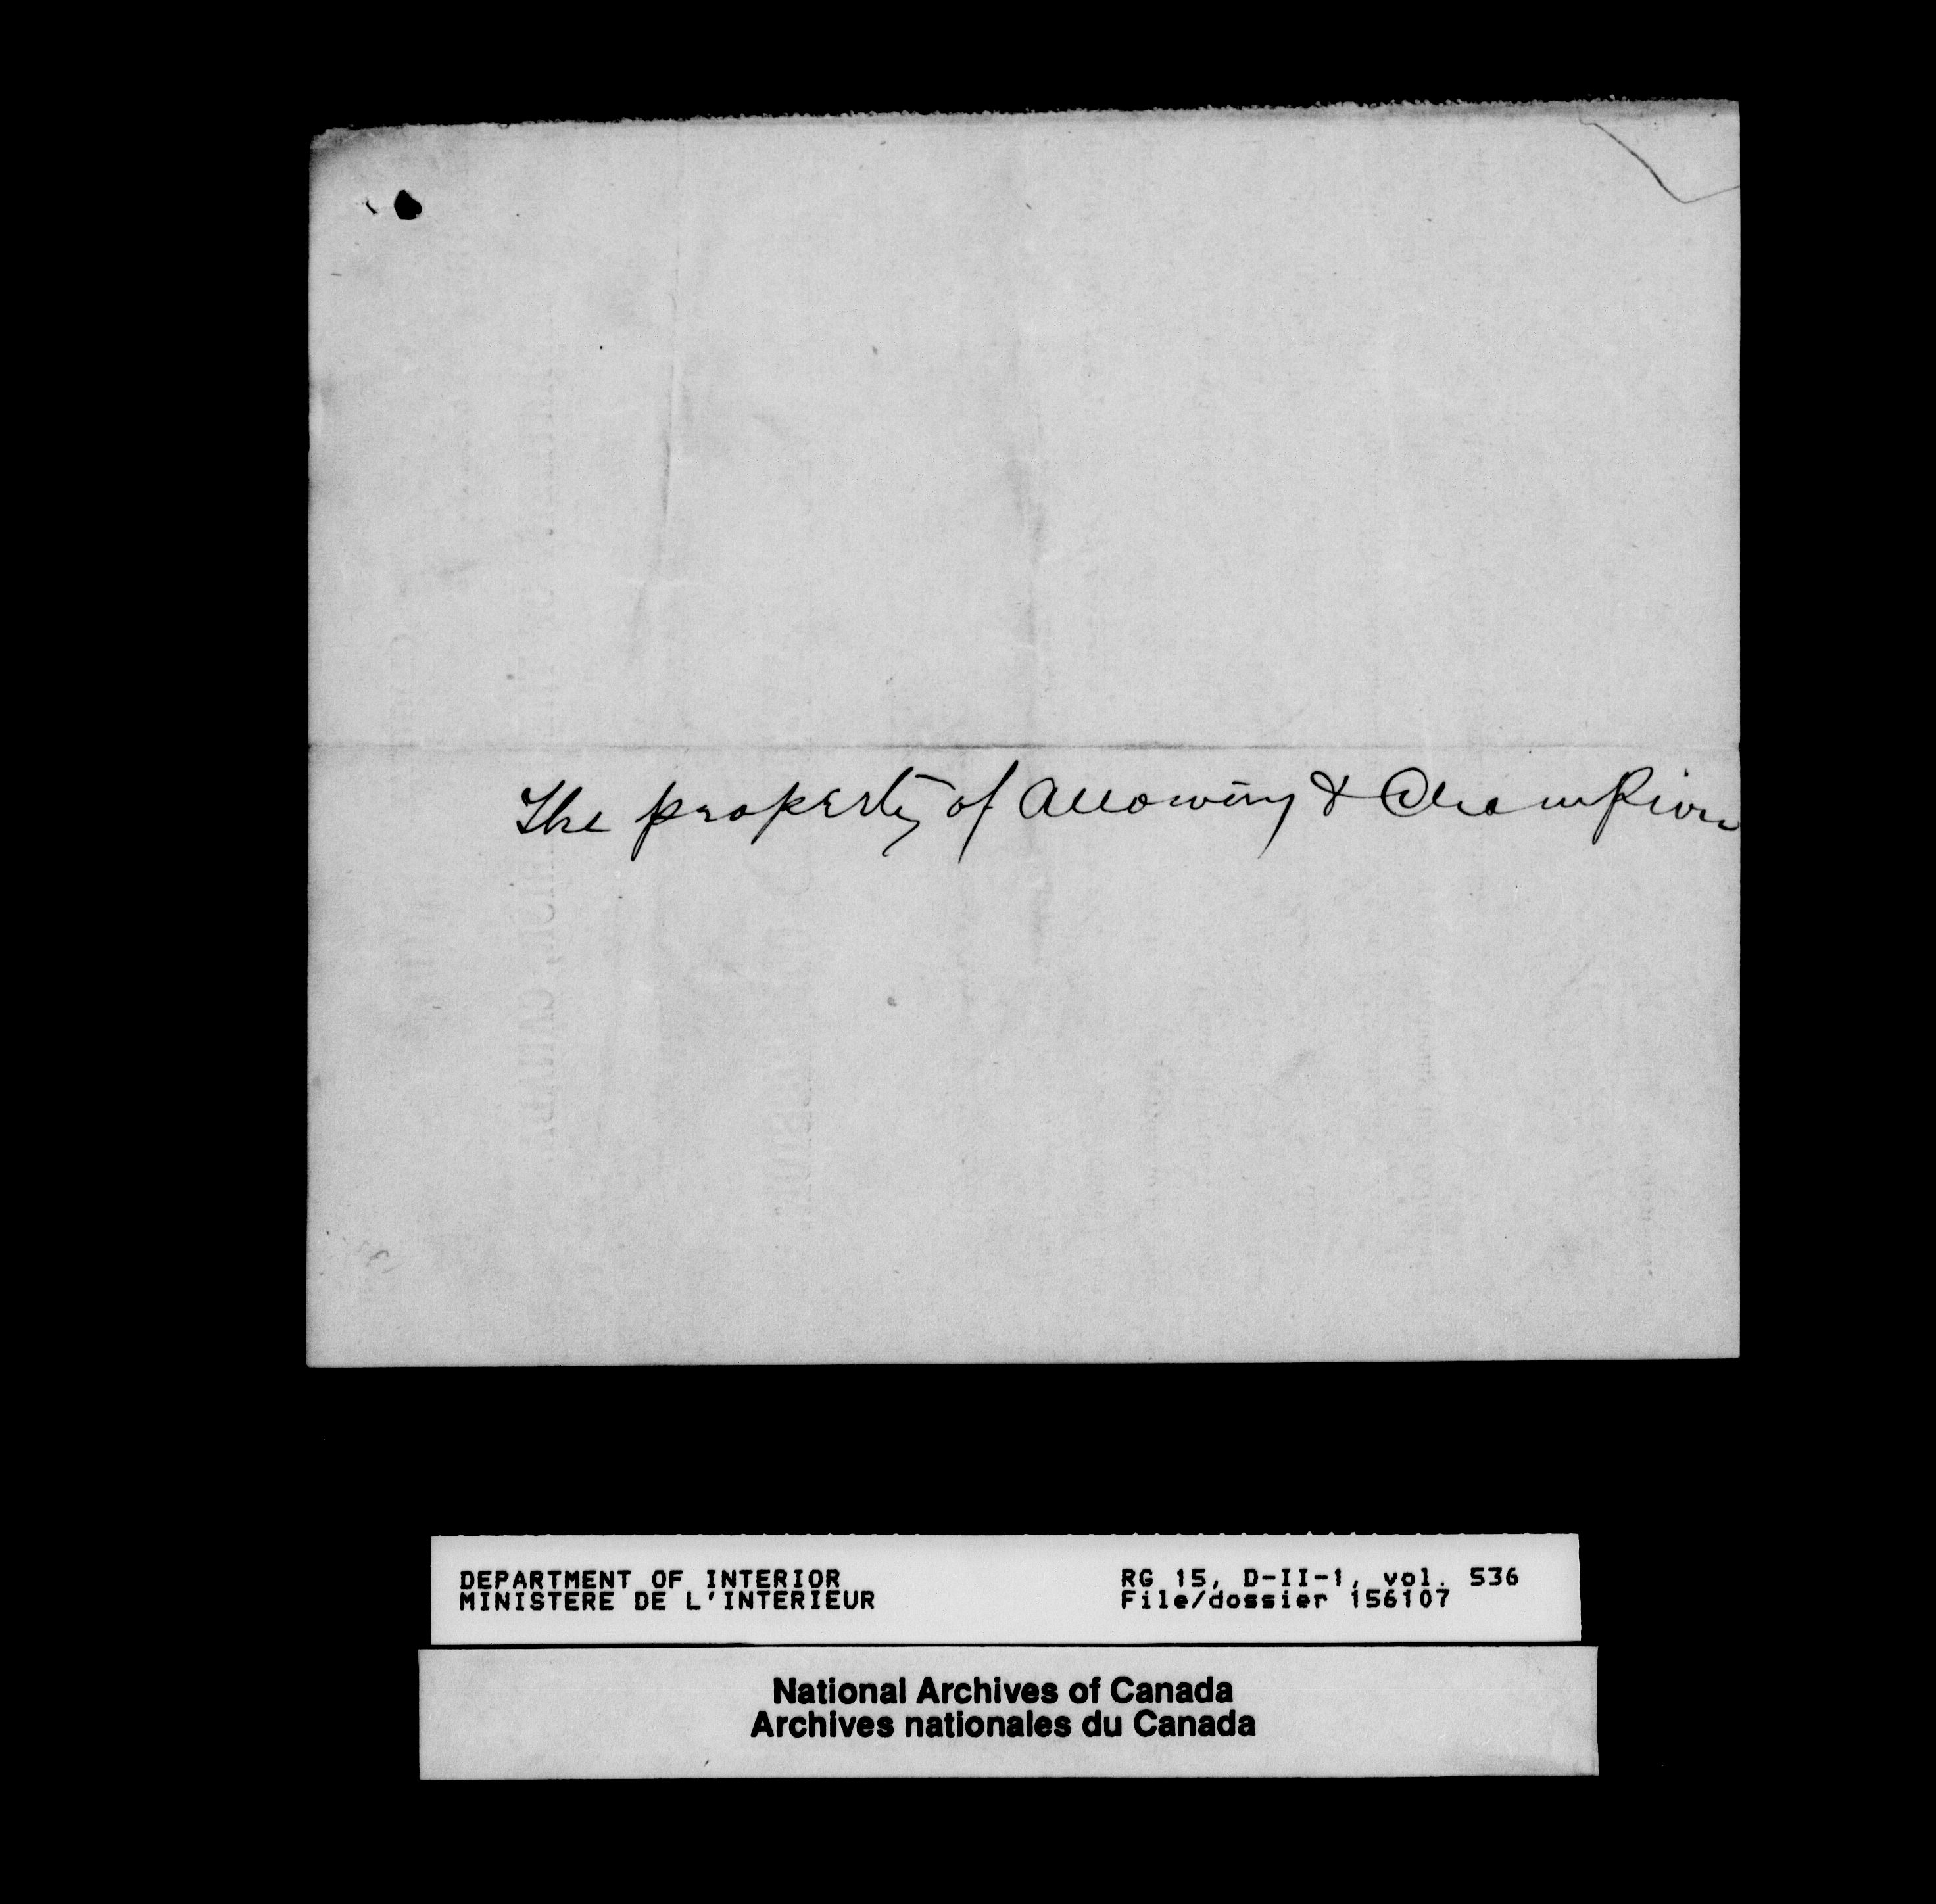 The property of Alloway & Champion
DEPARTMENT OF INTERIOR
MINISTERE DE L'INTERIEUR
RG 15, D-II-1, vol. 536
File/dossier 156107
National Archives of Canada
Archives nationales du Canada